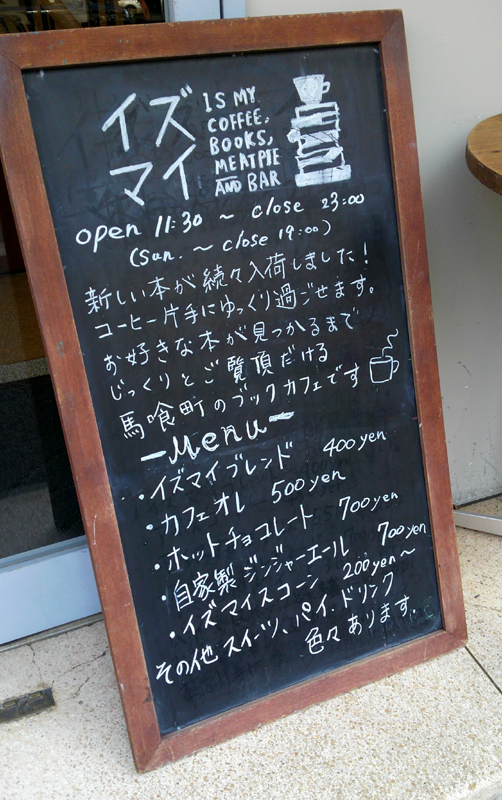 イズ
マイ
IS MY
COFFEE,
BOOKS,
MEATPIE
AND BAR
open 11:30 ~ close 23:00
(sun. ~ close 19:00)
新しい本が続々入荷しました!
コーヒー片手にゆっくり過ごせます。
お好きな本が見つかるまで
じっくりとご覧頂だける
馬喰町のブックカフェです
-Menu-
・イズマイブレンド 400 yen
・カフェオレ 500 yen
・ホットチョコレート 700 yen
・自家製ジンジャーエール 700 yen
・イズマイスコーン 200 yen~
その他スイーツ、パイ、ドリンク
色々あります。